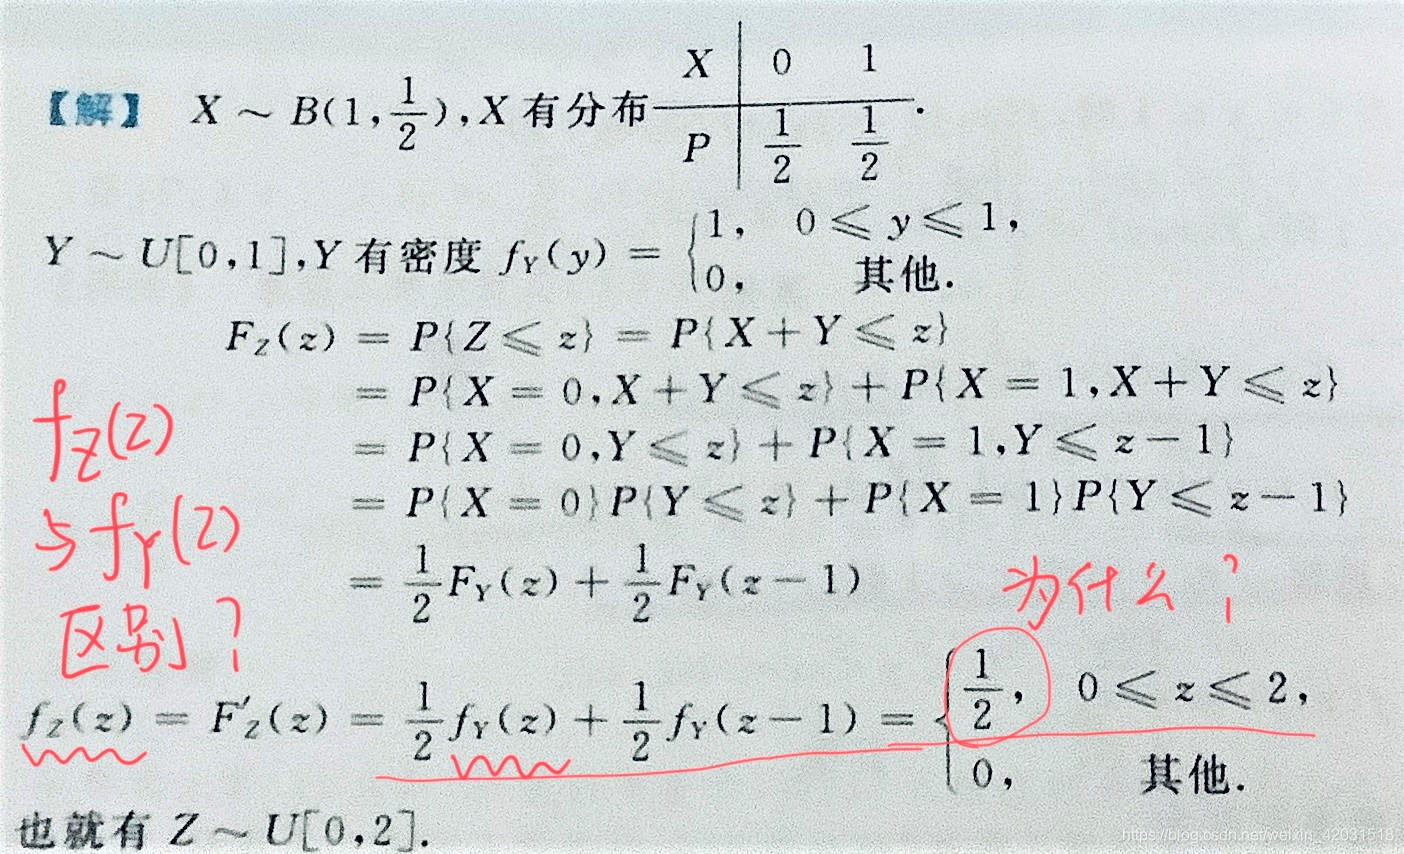 【解】 X ~ B(1, 1/2), X 有分布 X | 0 1
P | 1/2 1/2 .
Y ~ U[0,1], Y 有密度 f_Y(y) = { 1, 0 ⩽ y ⩽ 1,
0, 其他.
F_Z(z) = P{Z ⩽ z} = P{X + Y ⩽ z}
= P{X = 0, X + Y ⩽ z} + P{X = 1, X + Y ⩽ z}
= P{X = 0, Y ⩽ z} + P{X = 1, Y ⩽ z − 1}
= P{X = 0}P{Y ⩽ z} + P{X = 1}P{Y ⩽ z − 1}
= 1/2 F_Y(z) + 1/2 F_Y(z − 1)
f_Z(z)
与 f_Y(z)
区别?
为什么?
f_Z(z) = F′_Z(z) = 1/2 f_Y(z) + 1/2 f_Y(z − 1) = { 1/2, 0 ⩽ z ⩽ 2,
0, 其他.
也就有 Z ~ U[0,2].
https://blog.csdn.net/weixin_42031518